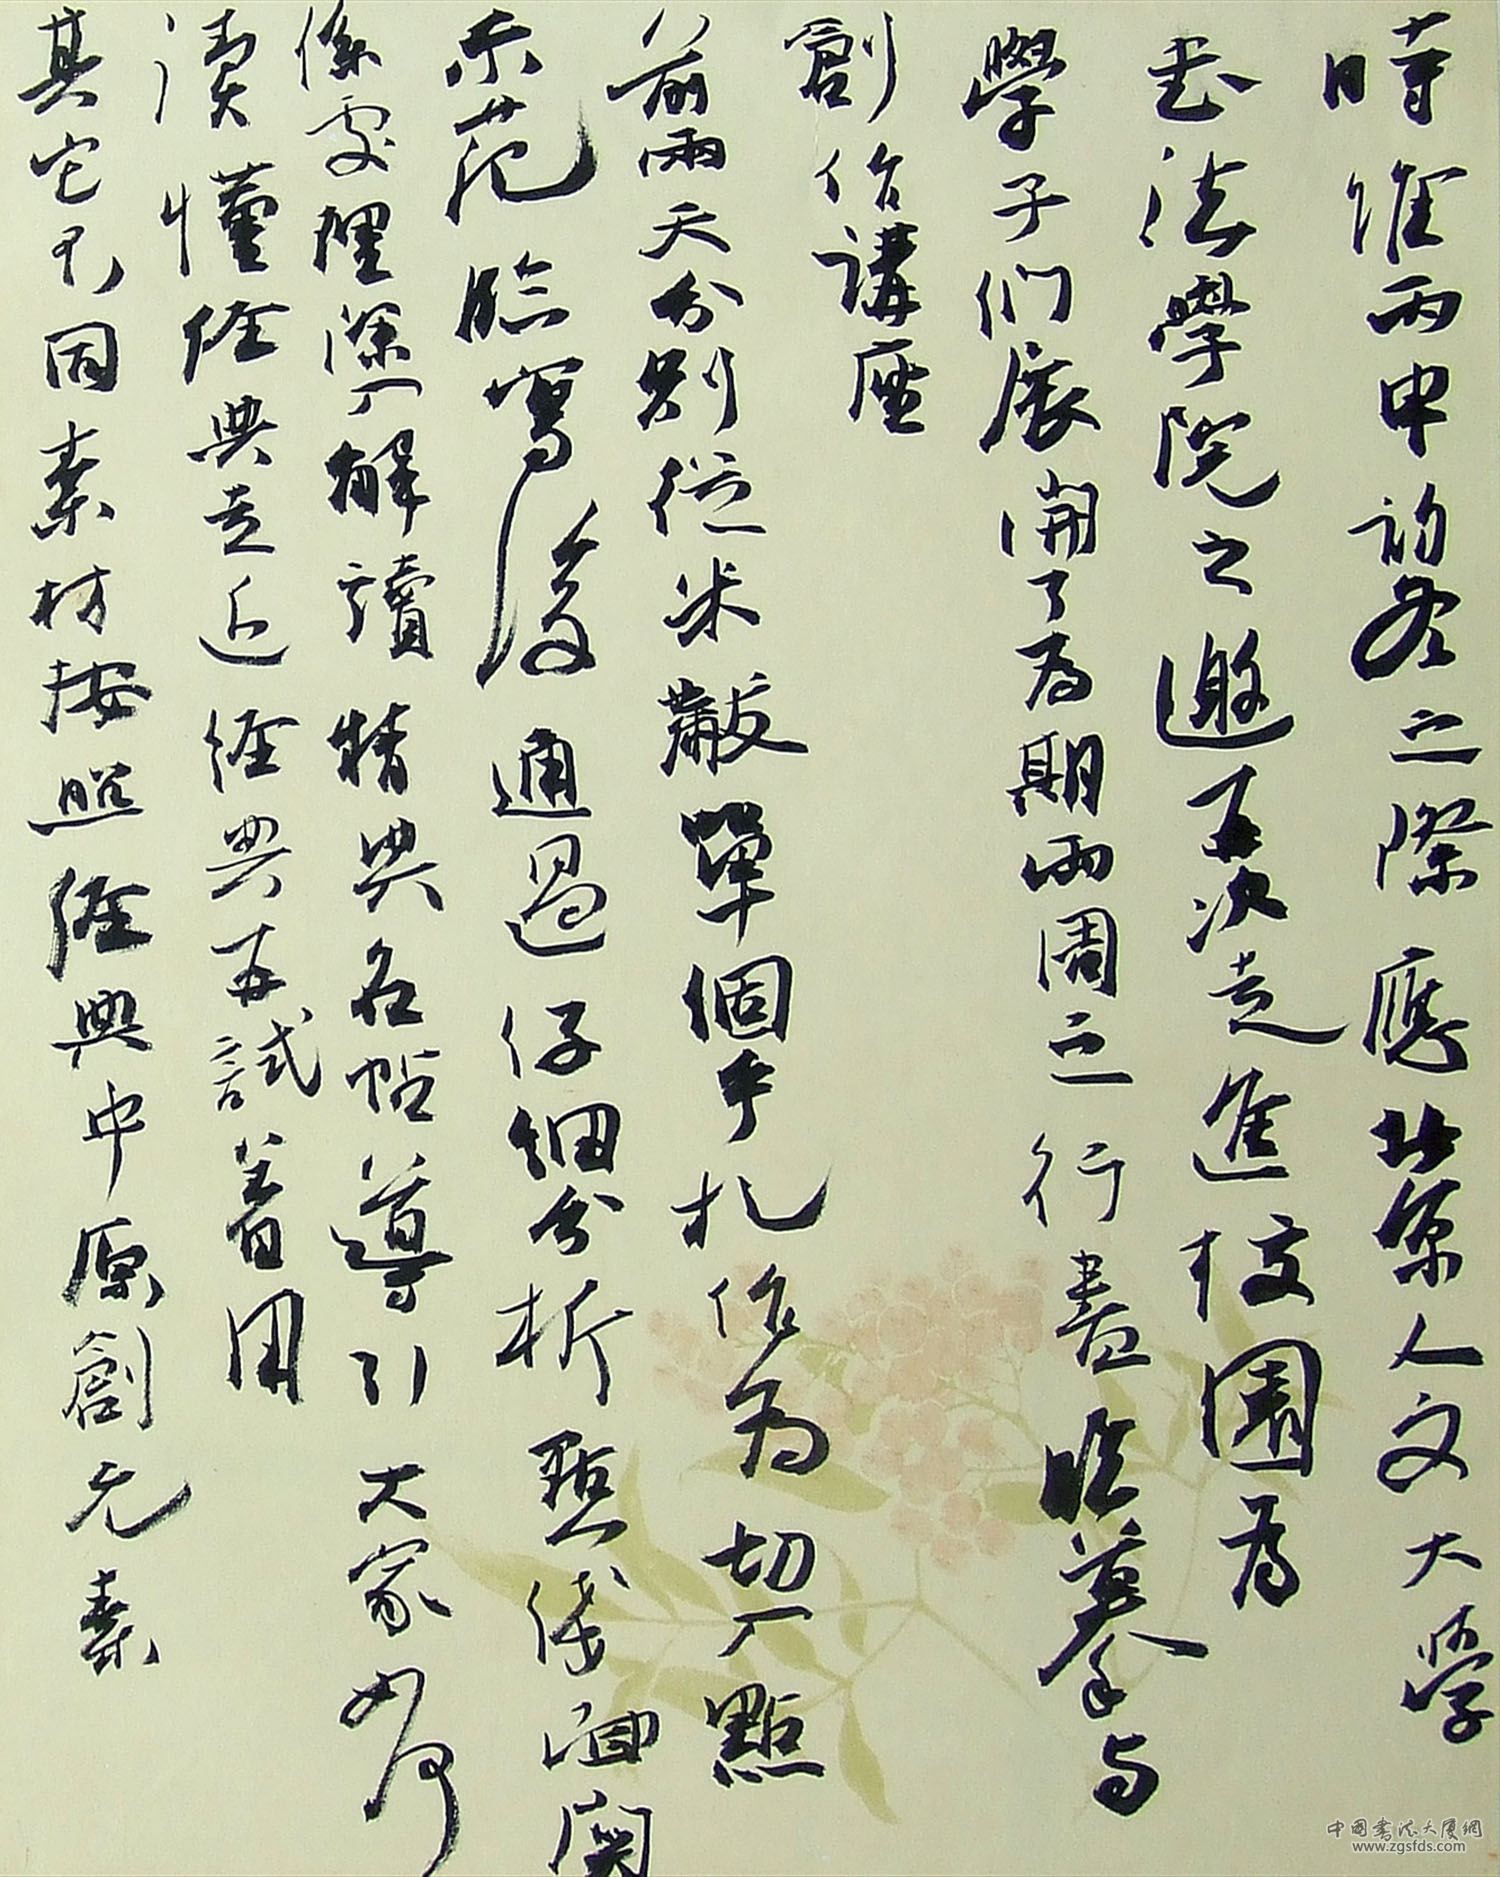 時維丙申初冬之際應北京人文大學
書法學院之邀再次走進校園為
學子們展開了為期兩周之行書臨摹与
創作講座
前兩天分別從米黻單個手札作為切入點
示范臨寫後通過仔細分析點線面関
係處理深入解讀精典名帖導引大家如何
讀懂經典走近經典再試著用
其它不同素材按照經典中原創元素
中国書法大廈網
www.zgsfds.com